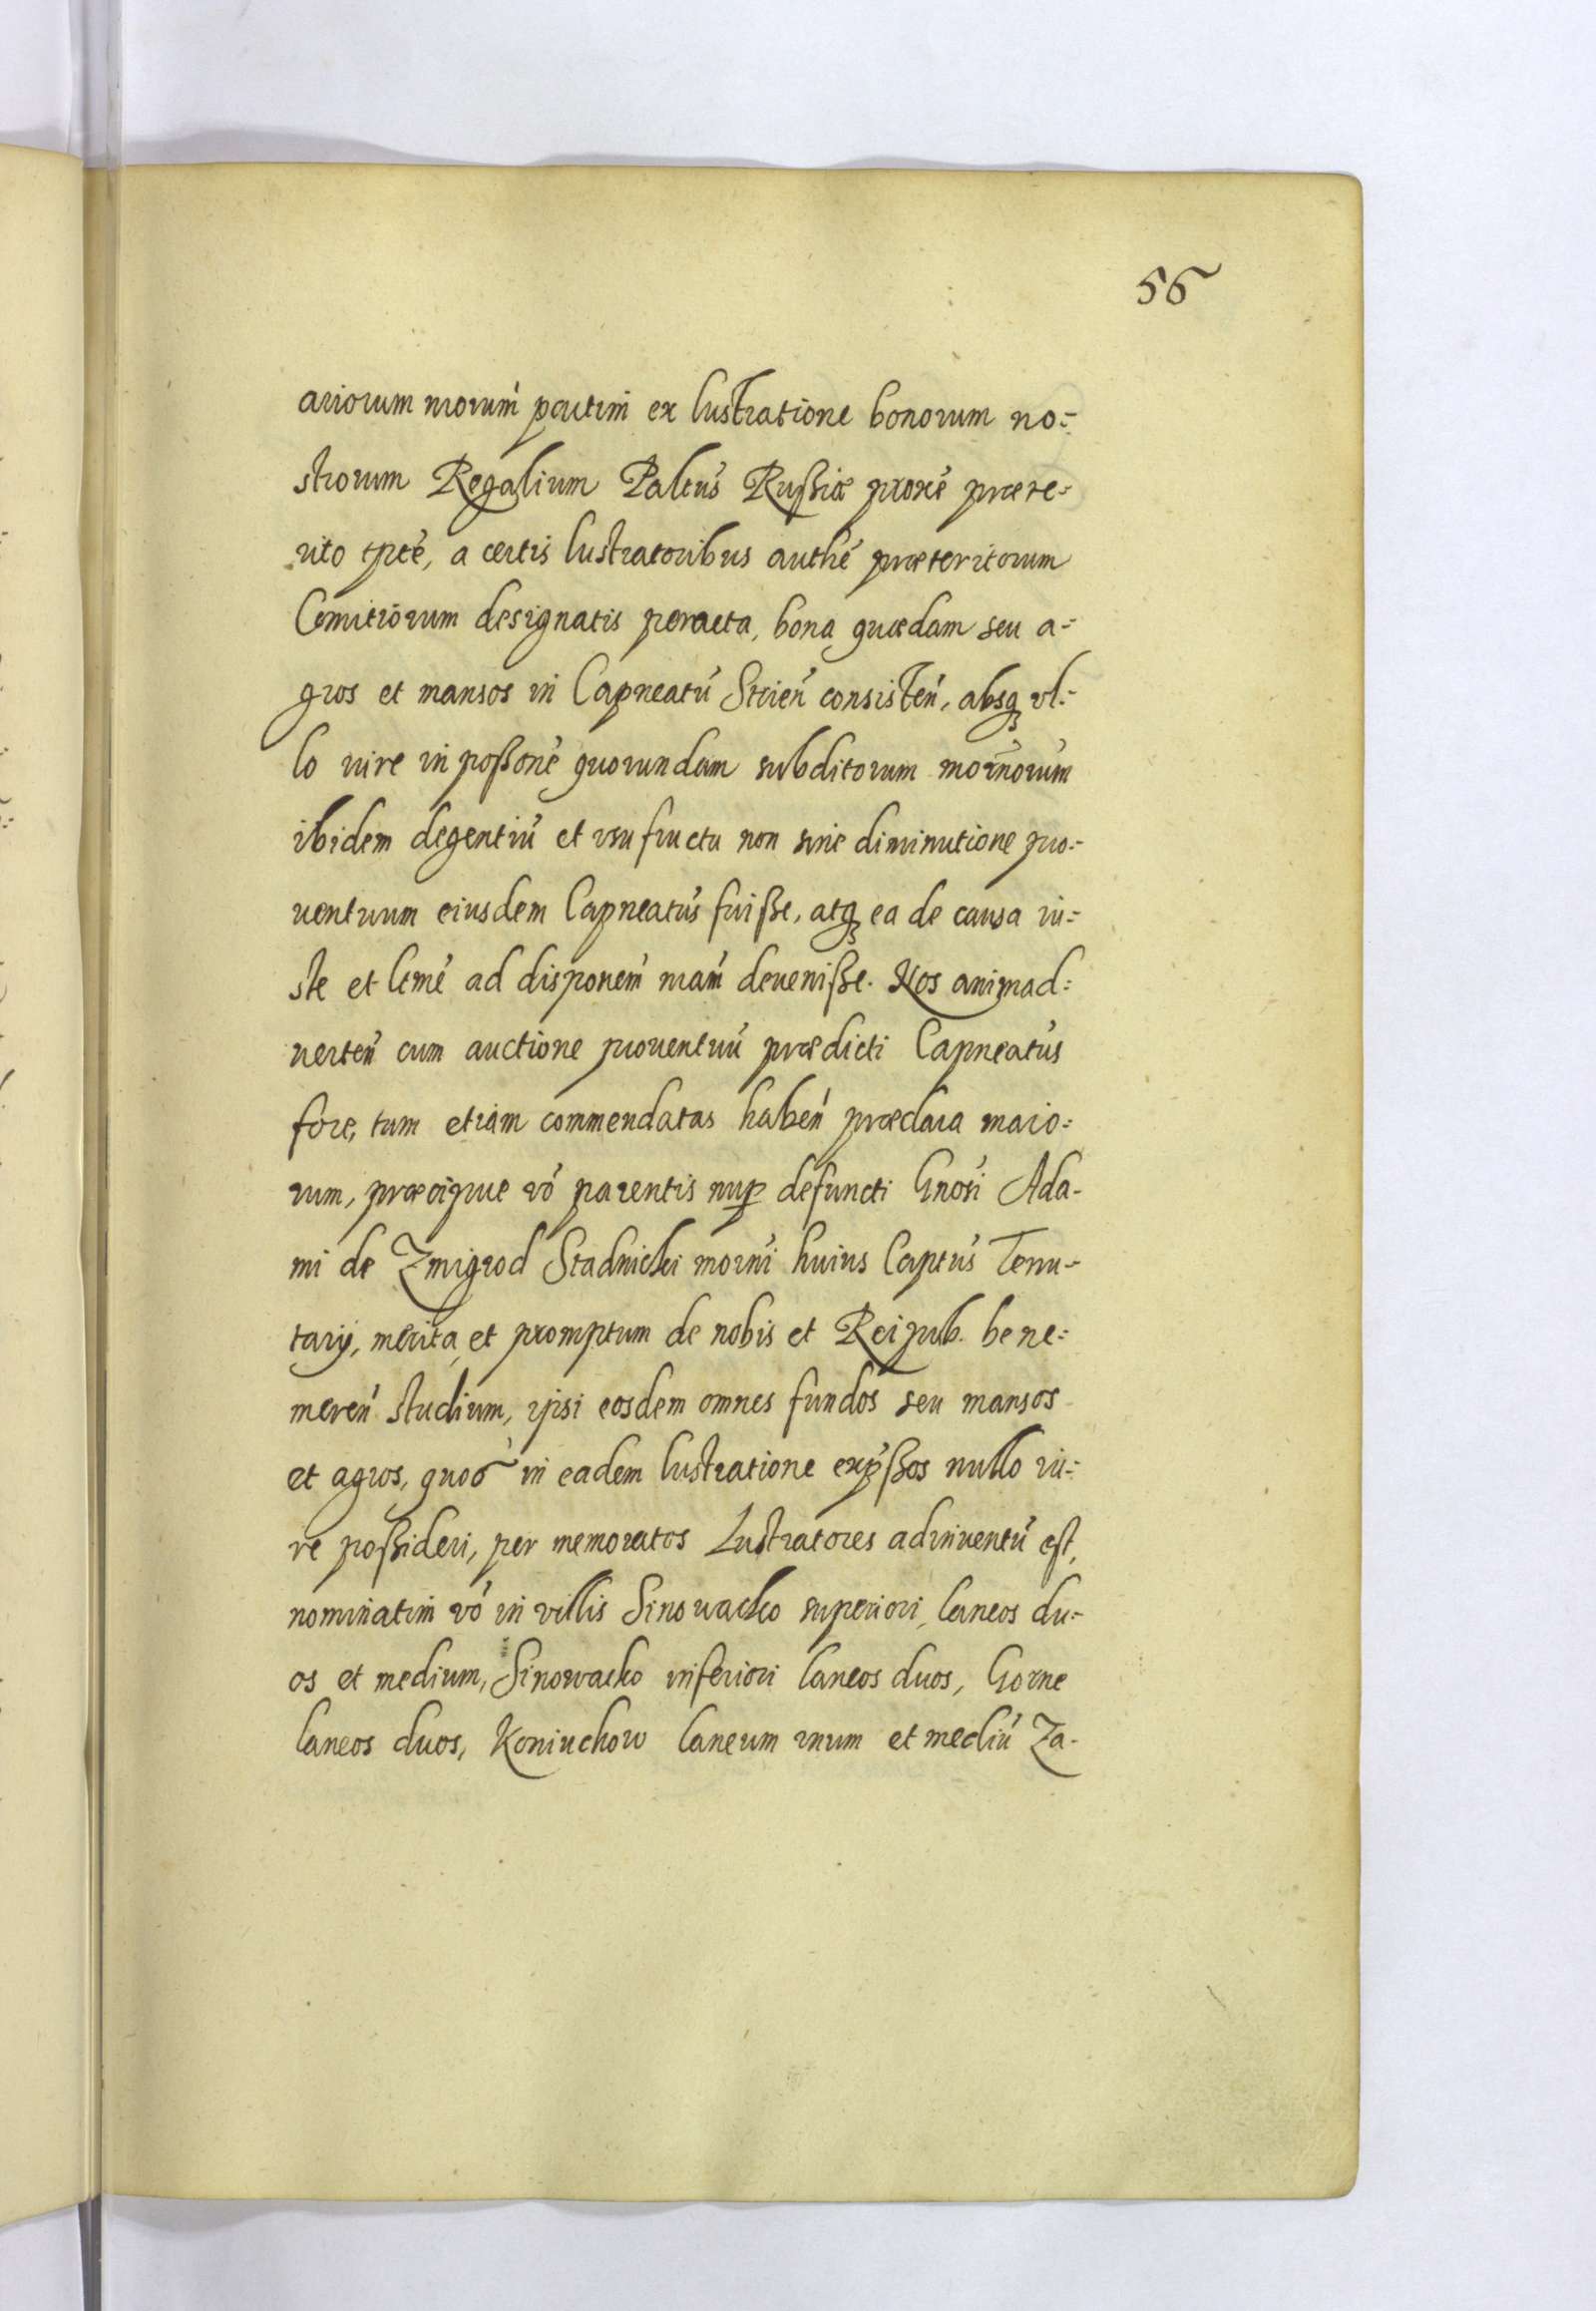 56
ariorum nrorum partim ex lustratione bonorum no=
strorum Regalium Paltus Rußiæ proxe præte=
rito tpre, a certis lustratoribus authe præteritorum
Comitiorum designatis peracta, bona quædam seu a=
gros et mansos in Capneatu Strien consisten, absq vl=
lo iure in poßone quorundam subditorum nrorum
ibidem degentiu et vsufructu non sine diminutione pro=
uentuum eiusdem Capneatus fuiße, atq ea de causa iu=
ste et ltme ad disponem nram deueniße. Nos animad=
uerten cum auctione prouentuu prædicti Capneatus
fore, tum etiam commendatas haben præclara maio=
rum, præcipue vo parentis nup defuncti Gnosi Ada-
mi de Zmigrod Stadnicki huius Captus Tenu=
tarij, merita, et promptum de nobis et Reipub. bene=
meren studium, ipsi eosdem omnes fundos seu mansos
et agros, quos in eadem lustratione expßos nullo iu=
re poßideri, per memoratos Lustratores adinuentu est,
nominatim vo in villis Sinowacko superiori, laneos du=
os et medium, Sinowacko inferiori laneos duos, Gorne
laneos duos, Koniuchow laneum vnum et mediu Za-